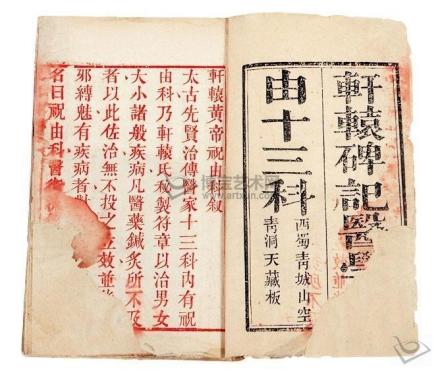 軒轅碑記醫
由十三科
西蜀青城山空
青洞天藏板
軒轅黃帝祝由科敘
太古先賢治傳醫家十三科內有祝
由科乃軒轅氏秘製符章以治男女
大小諸般疾病凡醫藥鍼炙所不及
者以此佐治無不投之立效並
邪縛魅有疾病者對
名曰祝由科醫
博宝艺术网